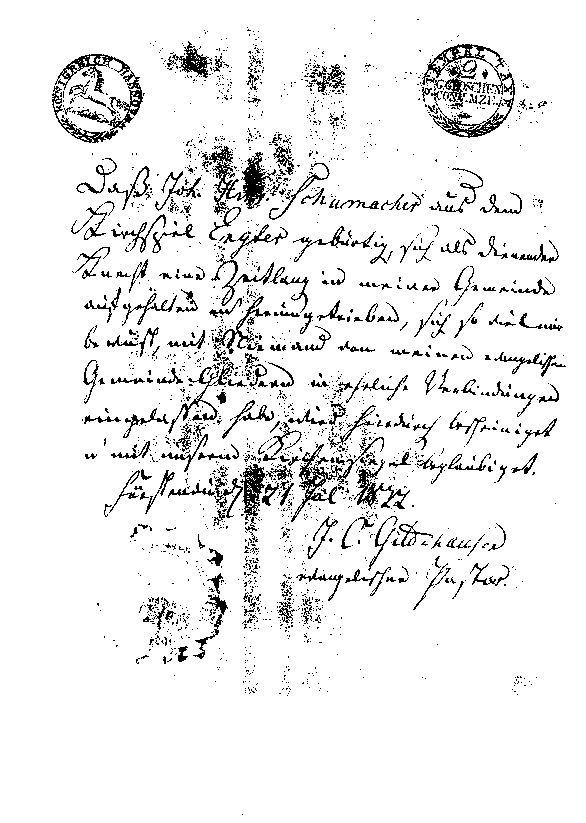 KÖNIGREICH HANNOVER
STEMPEL TAXE
2
G.GROSCHEN
CONV. MZE.
Daß Joh. Schumacher aus dem
Kirchspiel Engter gebürtig, sich als dienender
Knecht eine Zeitlang in meiner Gemeinde
aufgehalten u herumgetrieben, sich so viel mir
bewußt, mit Niemand von meinen evangelischen
Gemeinde-Gliedern in eheliche Verbindungen
eingelassen habe, wird hiedurch bescheiniget
u mit unserm Kirchensiegel beglaubiget.
Fürstenau d 21 Jul.
J. C. Gildehaus
evangelischer Pastor.